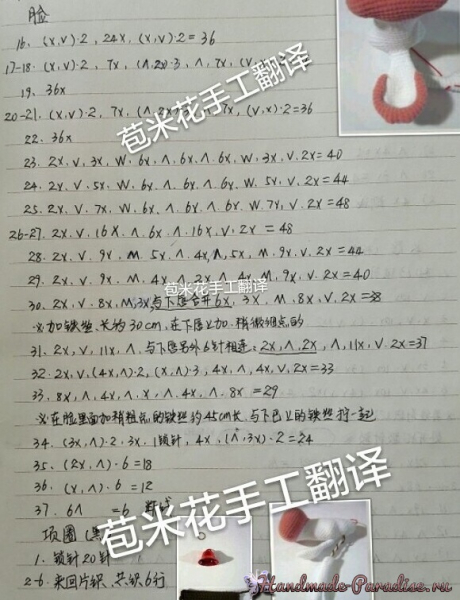 脸
16. (x,v)·2, 24x, (x,v)·2=36
17-18. (x,v)·2, 7x, (∧,2x)·3, ∧, 7x, (v,
19. 36x
20-21. (x,v)·2, 7x, (∧, 7x, (v,x)·2=36
22. 36x
23. 2x, v, 3x, W, 6x, ∧, 6x, ∧, 6x, W, 3x, v, 2x=40
24. 2x, v, 5x, W, 6x, ∧, 6x, ∧, 6x, W, 5x, v, 2x=44
25. 2x, v, 7x, W, 6x, ∧, 6x, ∧, 6x, W, 7x, v, 2x=48
26-27. 2x, v, 16x, ∧, 6x, ∧, 16x, v, 2x=48
28. 2x, v, 9x, M, 5x, ∧, 4x, ∧, 5x, M, 9x, v, 2x=44
29. 2x, v, 9x, M, 4x, ∧, 2x, ∧, 4x, M, 9x, v, 2x=40
30. 2x, v, 8x, M, 3x, 与下唇合并6x, 3x, M, 8x, v, 2x=38
※加铁丝,长约30cm,在下唇处加,稍微细点的
31. 2x, v, 11x, ∧, 与下唇另外6针相连, 2x, ∧, 2x, ∧, 11x, v, 2x=37
32. 2x, v, (4x,∧)·2, (x,∧)·3, 4x, ∧, 4x, v, 2x=33
33. 8x, ∧, 4x, ∧, x, ∧, 4x, ∧, 8x=29
※在脸里面加稍粗点的铁丝约45cm长,与下巴处的铁丝拧一起
34. (3x,∧)·2, 3x, 1锁针, 4x, (∧,3x)·2=24
35. (2x,∧)·6=18
36. (x,∧)·6=12
37. 6∧ =6 断线
项圈(黑
1. 锁针20针
2-6. 来回片织,共织6行
苞米花手工翻译
苞米花手工翻译
苞米花手工翻译
Handmade-Paradise.ru